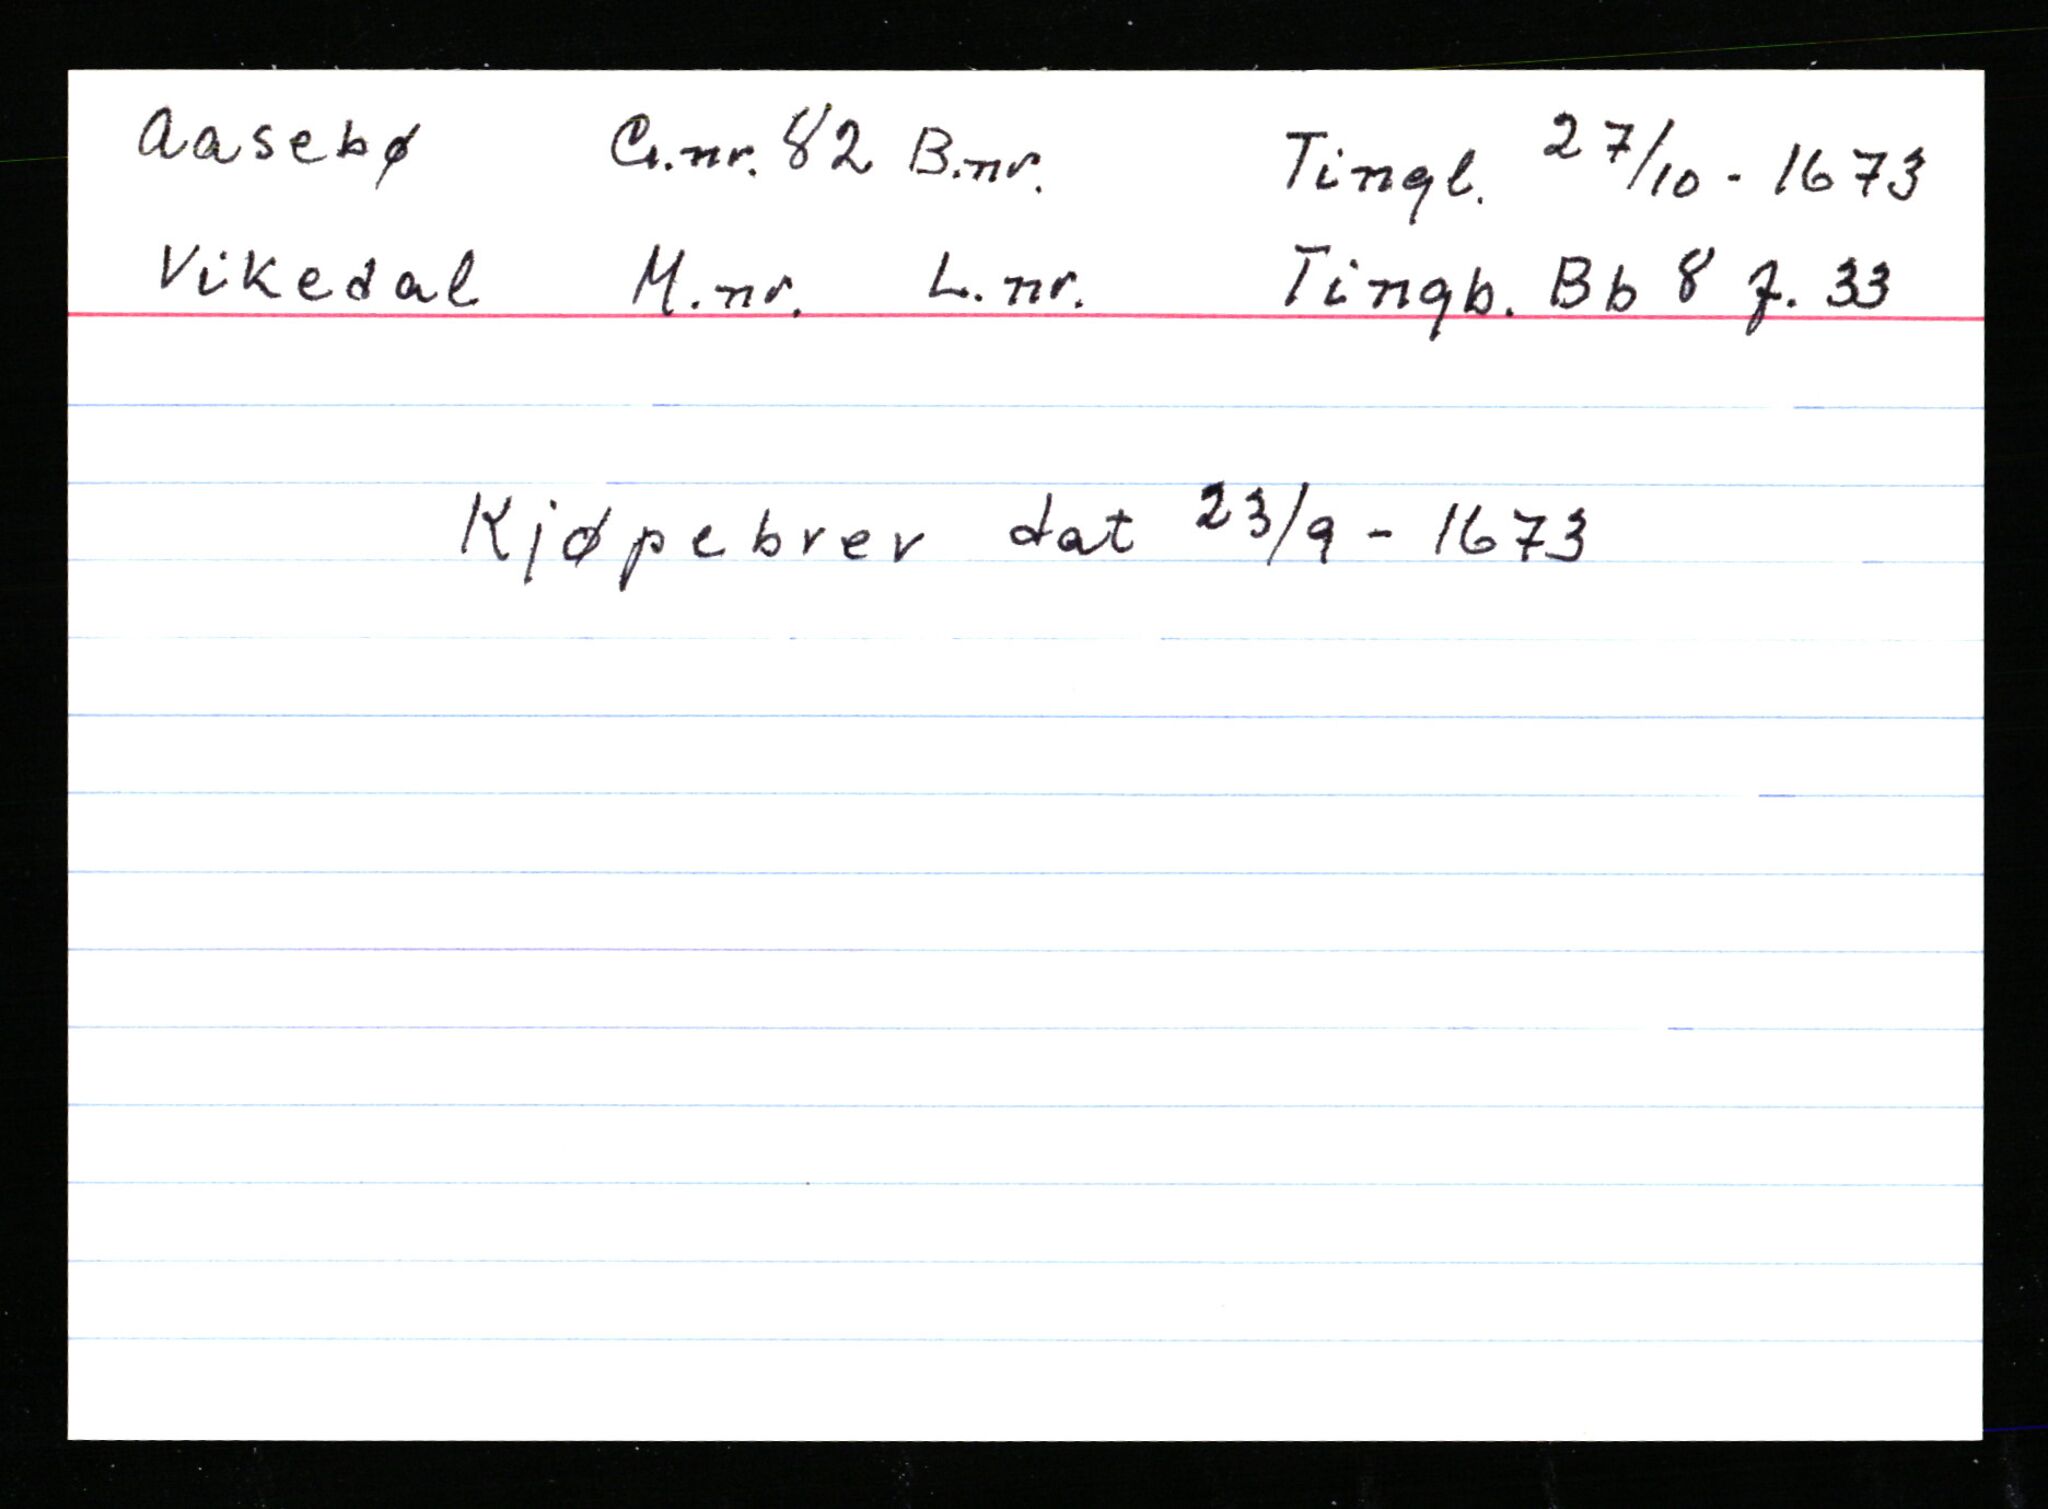 Aasebø G.nr. 82 B.nr. Tingl. 27/10 - 1673
Vikedal M.nr. L.nr. Tingb. Bb 8 f. 33
Kjøpebrev dat 23/9 - 1673